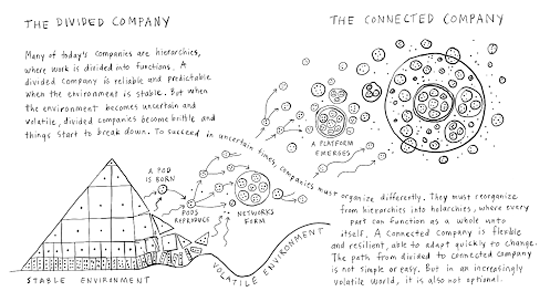 THE DIVIDED COMPANY
Many of today's companies are hierarchies,
where work is divided into functions. A
divided company is reliable and predictable
when the environment is stable. But when
the environment becomes uncertain and
volatile, divided companies become brittle and
things start to break down. To succeed in uncertain times, companies must
organize differently. They must reorganize
from hierarchies into holarchies, where every
part can function as a whole unto
itself. A Connected Company is flexible
and resilient, able to adapt quickly to change.
The path from divided to connected company
is not simple or easy. But in an increasingly
volatile world, it is also not optional.
THE CONNECTED COMPANY
A POD
IS BORN
PODS
REPRODUCE
NETWORKS
FORM
A PLATFORM
EMERGES
STABLE ENVIRONMENT
VOLATILE ENVIRONMENT